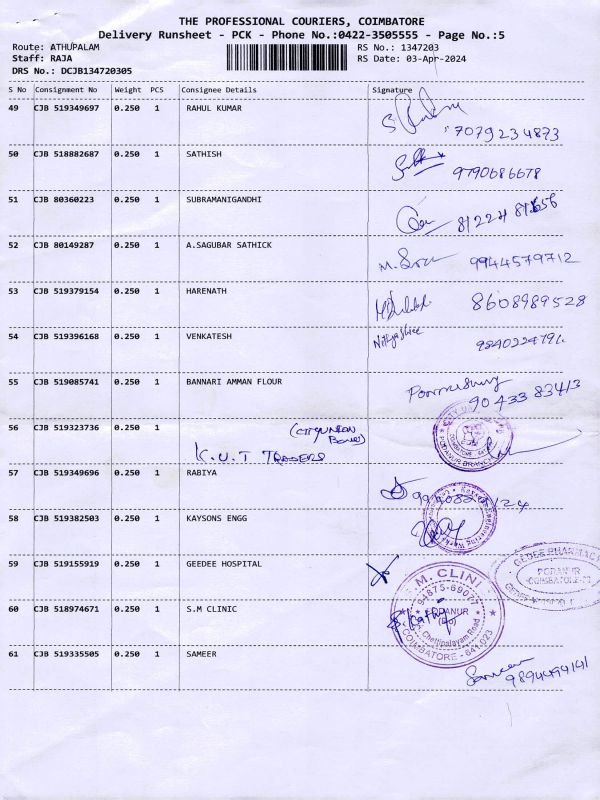 THE PROFESSIONAL COURIERS, COIMBATORE
Delivery Runsheet - PCK - Phone No.:0422-3505555 - Page No.:5
Route: ATHUPALAM
Staff: RAJA
DRS No.: DCJB134720305
RS No.: 1347203
RS Date: 03-Apr-2024
S No Consignment No Weight PCS Consignee Details Signature
49 CJB 519349697 0.250 1 RAHUL KUMAR
7079234873
50 CJB 518882687 0.250 1 SATHISH
9790686678
51 CJB 80360223 0.250 1 SUBRAMANIGANDHI
52 CJB 80149287 0.250 1 A.SAGUBAR SATHICK
9944579712
53 CJB 519379154 0.250 1 HARENATH
8608989528
54 CJB 519396168 0.250 1 VENKATESH
Nithyashree
55 CJB 519085741 0.250 1 BANNARI AMMAN FLOUR
90433 83413
56 CJB 519323736 0.250 1
K.U.T TRADERS
PODANUR BRANCH
57 CJB 519349696 0.250 1 RABIYA
58 CJB 519382503 0.250 1 KAYSONS ENGG
59 CJB 519155919 0.250 1 GEEDEE HOSPITAL
GEDEE PHARMAC
PODANUR
COIMBATORE
60 CJB 518974671 0.250 1 S.M CLINIC
M. CLINI
94875-69072
PODANUR
(Po)
Chettipalayam Road
COIMBATORE - 641 023
61 CJB 519335505 0.250 1 SAMEER
Sameer
9894494141